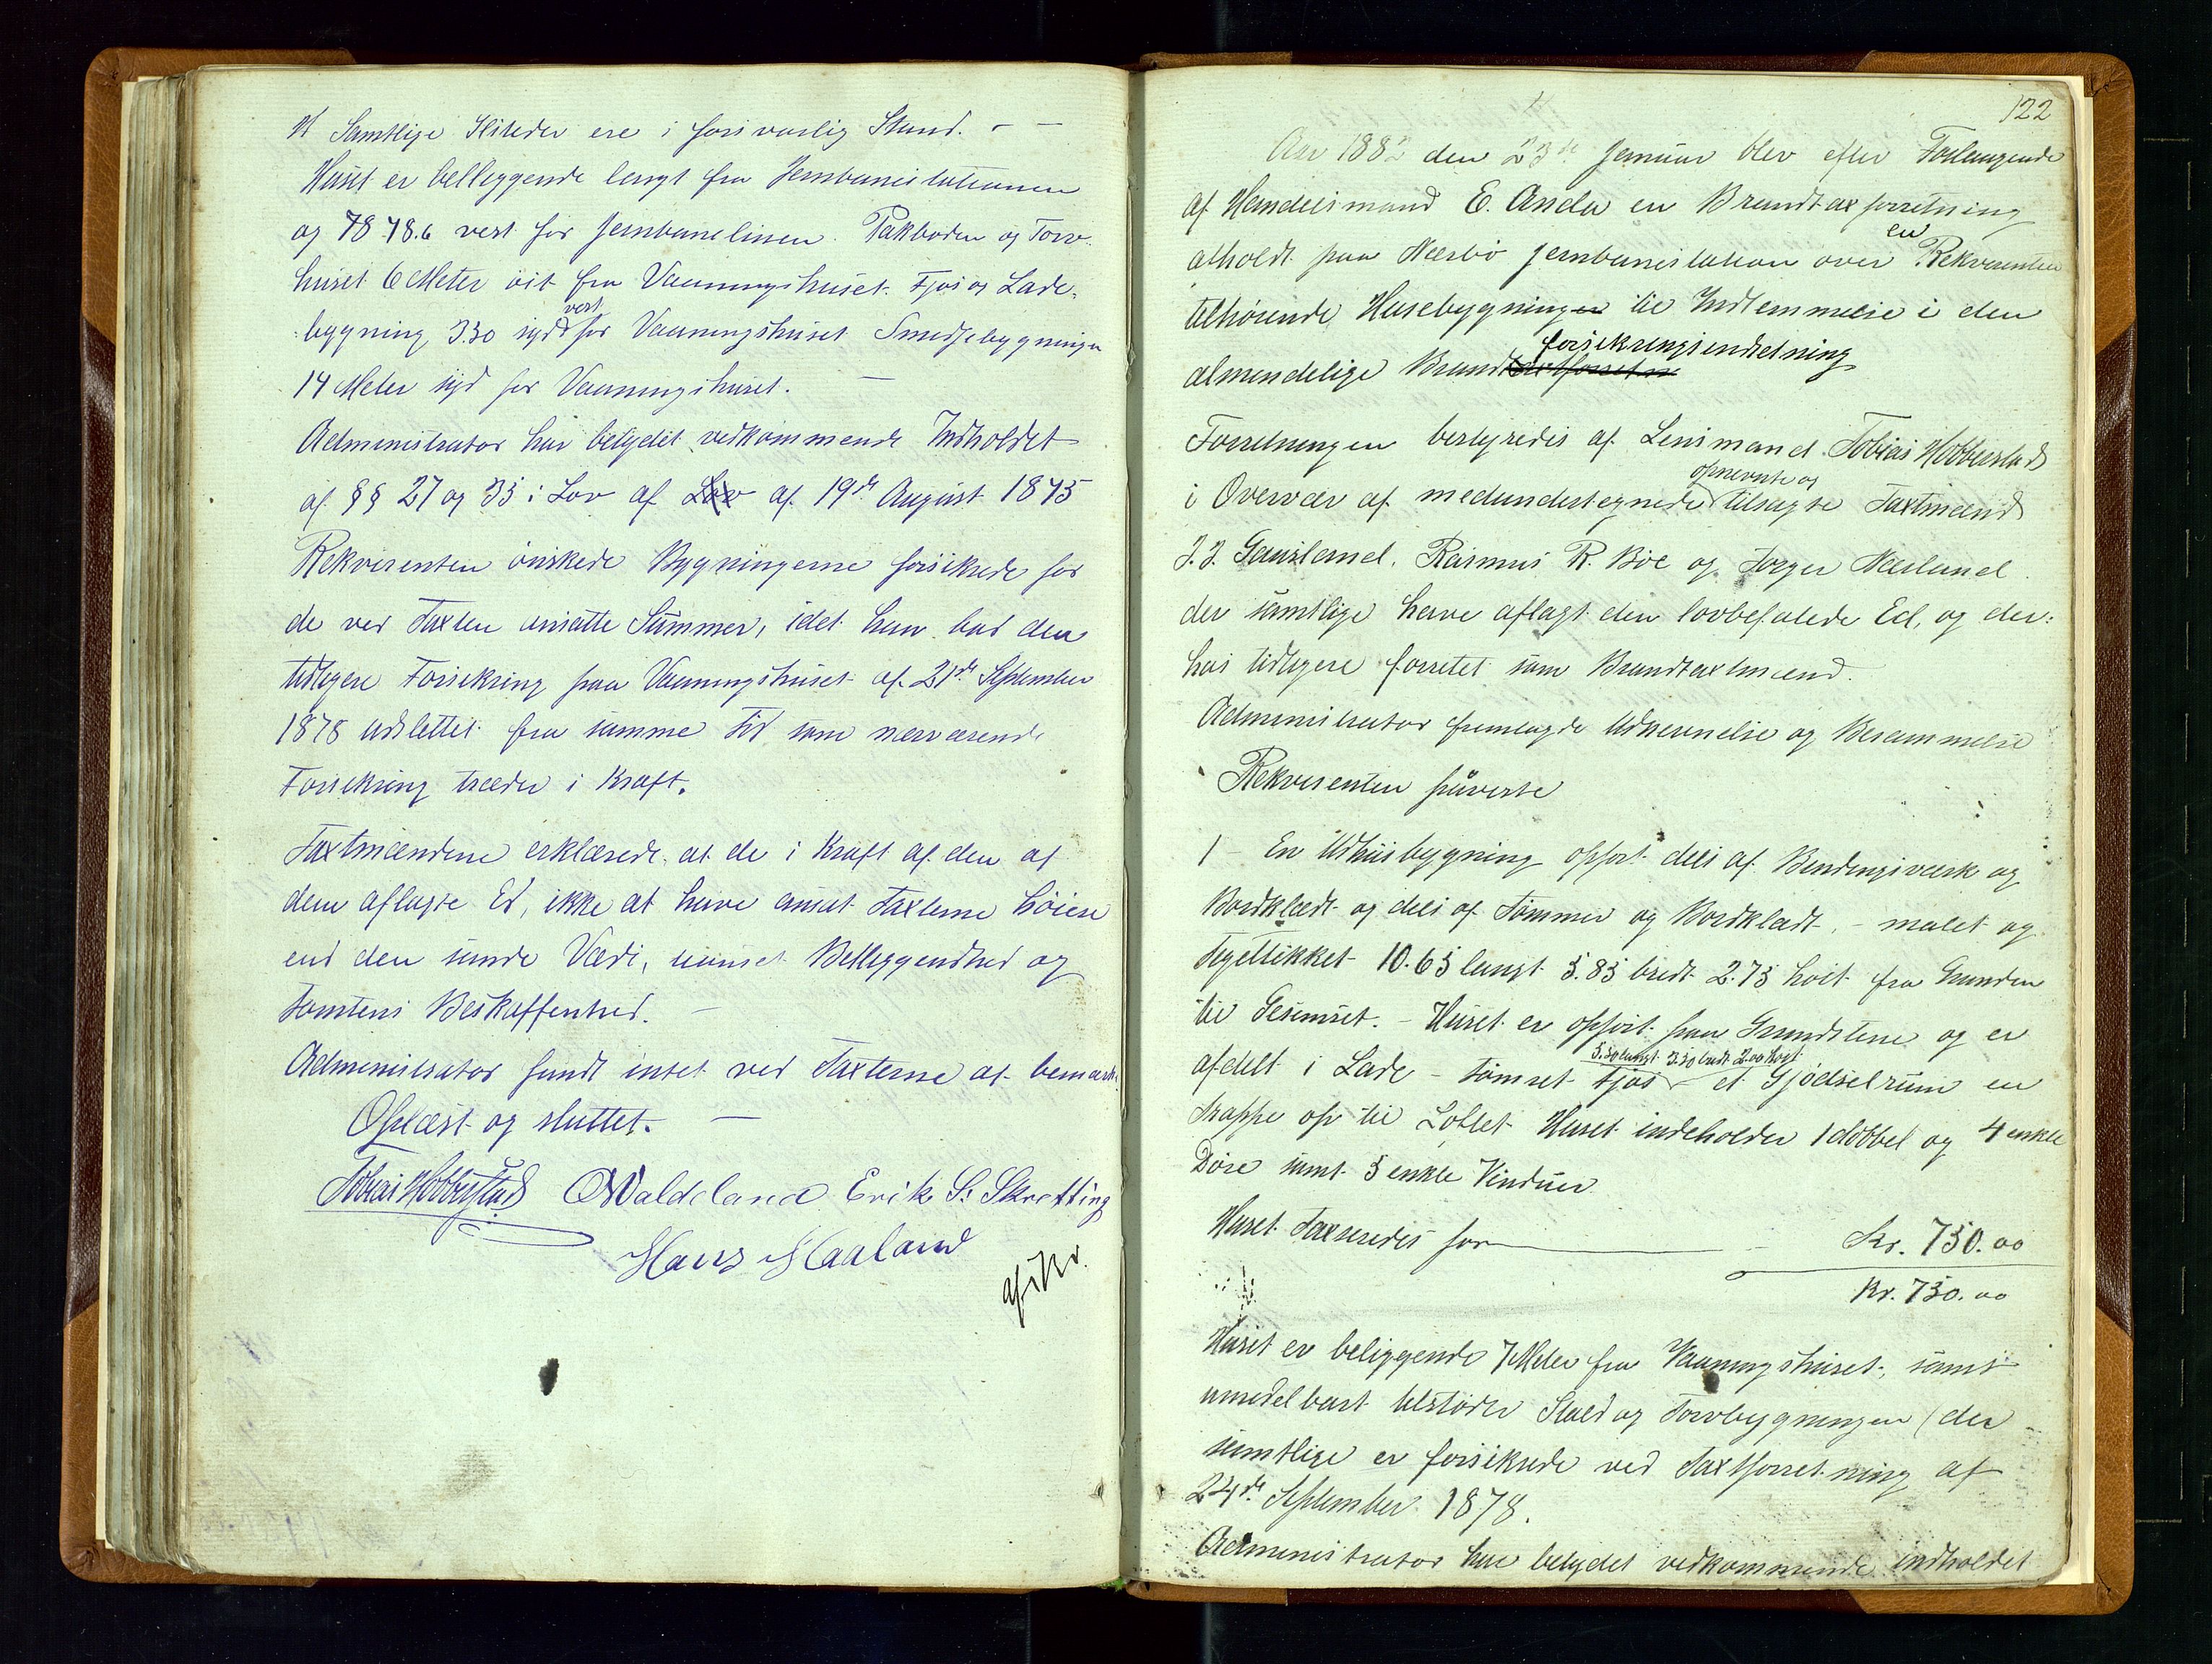 Samtlige Ildsteder ere i forsvarlig Stand. - -
Huset er belleggende lengst fra Jernbanestationen
og 78.6 vest for Jernbanelinien. Pakboden og Torv-
huset 6 Meter öst fra Vaaningshuset. Fjös og Lade-
bygning 3.30 syd vest for Vaaningshuset Smedjebygningen
14 Meter syd for Vaaningshuset. -
Administrator har betydet vedkommende Indholdet
af §§ 27 og 35 i Lov af Lov af 19de August 1845
Rekvirenten önskede Bygningerne forsikrede for
de ved Taxten ansatte Summer, idet han bad den
tidligere Forsikring paa Vaaningshuset af 21de September
1878 udslettet fra samme Tid som nærværende
Forsikring træder i Kraft.
Taxtmændene erklærede at de i Kraft af den af
dem aflagte Ed, ikke at have ansat Taxterne höiere
end den sande Værdi, uanset Belleggendhed og
Tomtens Beskaffenhed. -
Administrator fandt intet ved Taxterne at bemærke
Oplæst og sluttet. -
Tobias Hobberstad O Waldeland Erik S. Skretting
Hans Haaland
122
Aar 1882 den 23de Januar blev efter Forlangende
af Handelsmand E. Anda en Brandtaxtforretning
afholdt paa Nærbö Jernbanestation over en Rekvirenten
tilhörende Husebygningen til Indlemmelse i den
almendelige Brandforsikringsindretning
Forretningen bestyredes af Lensmand Tobias Hobberstad
i Overvær af medundertegnede opnevnte og tilsagte Taxtmænd
J. J. Gausland, Rasmus R. Böe og Torger Nærland
der samtlige have aflagt den lovbefalede Ed, og der-
hos tidligere forrettet som Brandtaxtmænd.
Administrator fremlagde Udnevnelse og Berammelse
Rekvirenten påviste
1 - En Udhusbygning opfört dels af Bendingsværk og
Bordklædt og dels af Tömmer og Bordklædt, - malet og
Tegltækket 10.65 langt 5.85 bredt 2.75 höit fra Grunden
til Gesimset. - Huset er opfört paa Grundstene og er
afdelt i Lade - tömret Fjös 5.30 langt 3.30 bredt 2.00 høgt - et Gjödselrum en
Trappe op til Loftet Huset indeholder 1 dobbel og 4 enkle
Döre samt 5 enkle Vinduer
Huset Taxseredes for - Kr. 750.00
Kr. 750.00
Huset er beliggende 7 Meter fra Vaaningshuset, samt
umedelbart tilstöder Stald og Torvbygningen (der
samtlige er forsikrede ved Taxtforretning af
24de September 1878.
Administrator har betydet vedkommende indholdet